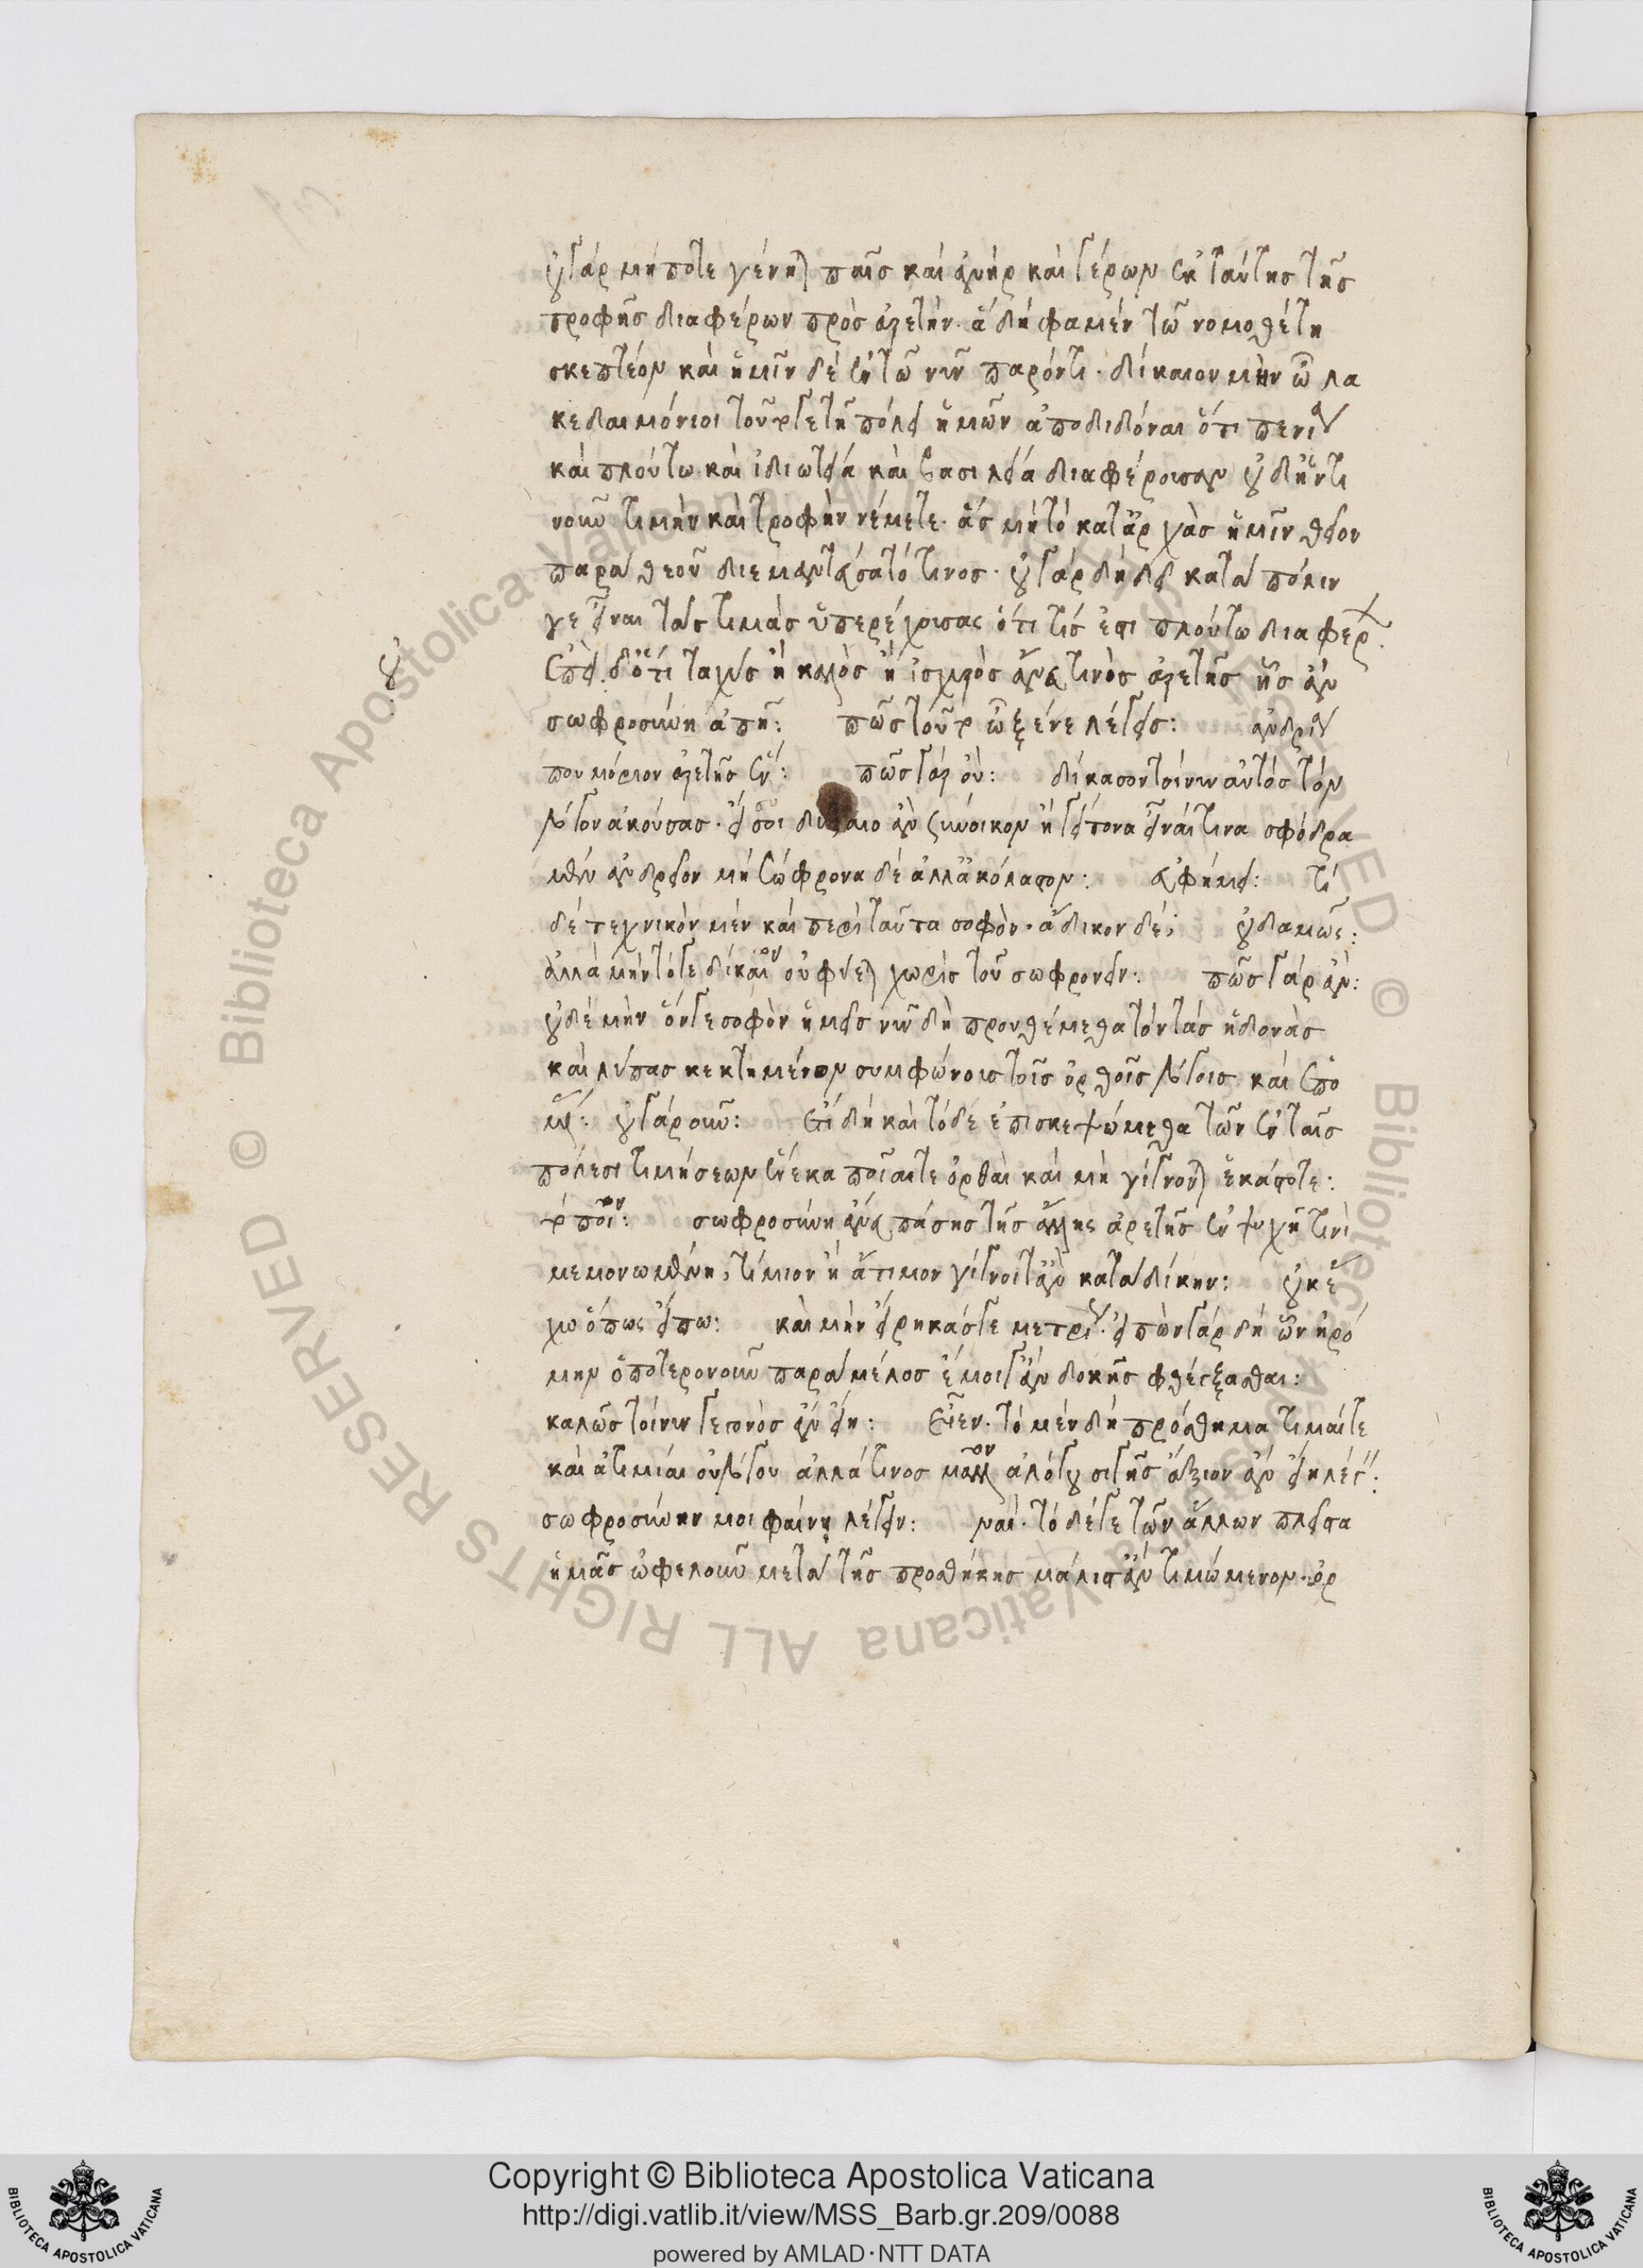 οὐ γὰρ μή ποτε γένηται παῖς καὶ ἀνὴρ καὶ γέρων ἐκ ταύτης τῆς
τροφῆς διαφέρων πρὸς ἀρετήν. ἃ δή φαμεν τῶ νομοθέτη
σκεπτέον καὶ ἡμῖν δὲ ἐν τῶ νῦν παρόντι. δίκαιον μὴν ὦ λα
κεδαιμόνιοι τοῦτό γε τῆ πόλει ὑμῶν ἀποδιδόναι ὅτι πενίαν
καὶ πλούτω καὶ ἰδιωτεία καὶ βασιλεία διαφέρουσαν οὐδ' ἥντι
νοῦν τιμὴν καὶ τροφὴν νέμετε. ἃς μὴ τὸ κατ' ἀρχὰς ὑμῖν θεῖον
παρὰ θεοῦ διεμαντεύσατό τινος. οὐ γὰρ δὴ δεῖ κατὰ πόλιν
γε εἶναι τὰς τιμὰς ὑπερεχούσας ὅτι τίς ἐστι πλούτω διαφέρων.
ἐπεὶ δ' ὅτι ταχὺς ἢ καλὸς ἢ ἰσχυρὸς ἄνευ τινὸς ἀρετῆς ἧς ἂν
σωφροσύνη ἀπῆ: πῶς τοῦτο ὦ ξένε λέγεις: ἀνδρίαν
που μόριον ἀρετῆς ἕν: πῶς γὰρ οὔ: δίκασον τοίνυν αὐτὸς τὸν
λόγον ἀκούσας. εἴ σοι δέξαιο ἂν ξύνοικον ἢ γείτονα εἶναί τινα σφόδρα
μὲν ἀνδρεῖον μὴ σώφρονα δὲ ἀλλ' ἀκόλαστον: εὐφήμει: τί
δὲ τεχνικὸν μὲν καὶ περὶ ταῦτα σοφὸν. ἄδικον δέ; οὐδαμῶς:
ἀλλὰ μὴν τό γε δίκαιον οὐ φύεται χωρὶς τοῦ σωφρονεῖν: πῶς γὰρ ἄν:
οὐδὲ μὴν ὅν γε σοφὸν ἡμεῖς νῦν δὴ προυθέμεθα τὸν τὰς ἡδονὰς
καὶ λύπας κεκτημένον συμφώνους τοῖς ὀρθοῖς λόγοις καὶ ἑπο
μένας: οὐ γὰρ οὖν: ἔτι δὴ καὶ τόδε ἐπισκεψώμεθα τῶν ἐν ταῖς
πόλεσι τιμήσεων ἕνεκα ποῖαί τε ὀρθαὶ καὶ μὴ γίγνονται ἑκάστοτε:
τὸ ποῖον: σωφροσύνη ἄνευ πάσης τῆς ἄλλης ἀρετῆς ἐν ψυχῆ τινὶ
μεμονωμένη, τίμιον ἢ ἄτιμον γίγνοιτ' ἂν κατὰ δίκην: οὐκ ἔ
χω ὅπως εἴπω: καὶ μὴν εἴρηκάς γε μετρίως. εἰπὼν γὰρ δὴ ὧν ἠρό
μην ὁποτερονοῦν παρὰ μέλος ἔμοιγ' ἂν δοκῆς φθέγξασθαι:
καλῶς τοίνυν γεγονὸς ἂν εἴη: εἶεν. τὸ μὲν δὴ πρόσθημα τιμαῖτε
καὶ ἀτιμίαι οὐ λόγου ἀλλά τινος μᾶλλον ἀλόγου σιγῆς ἄξιον ἂν εἴη λέγεις:
σωφροσύνην μοι φαίνη λέγειν: ναί. τὸ δέ γε τῶν ἄλλων πλεῖστα
ἡμᾶς ὠφελοῦν μετὰ τῆς προσθήκης μάλιστ' ἂν τιμώμενον. ὀρ